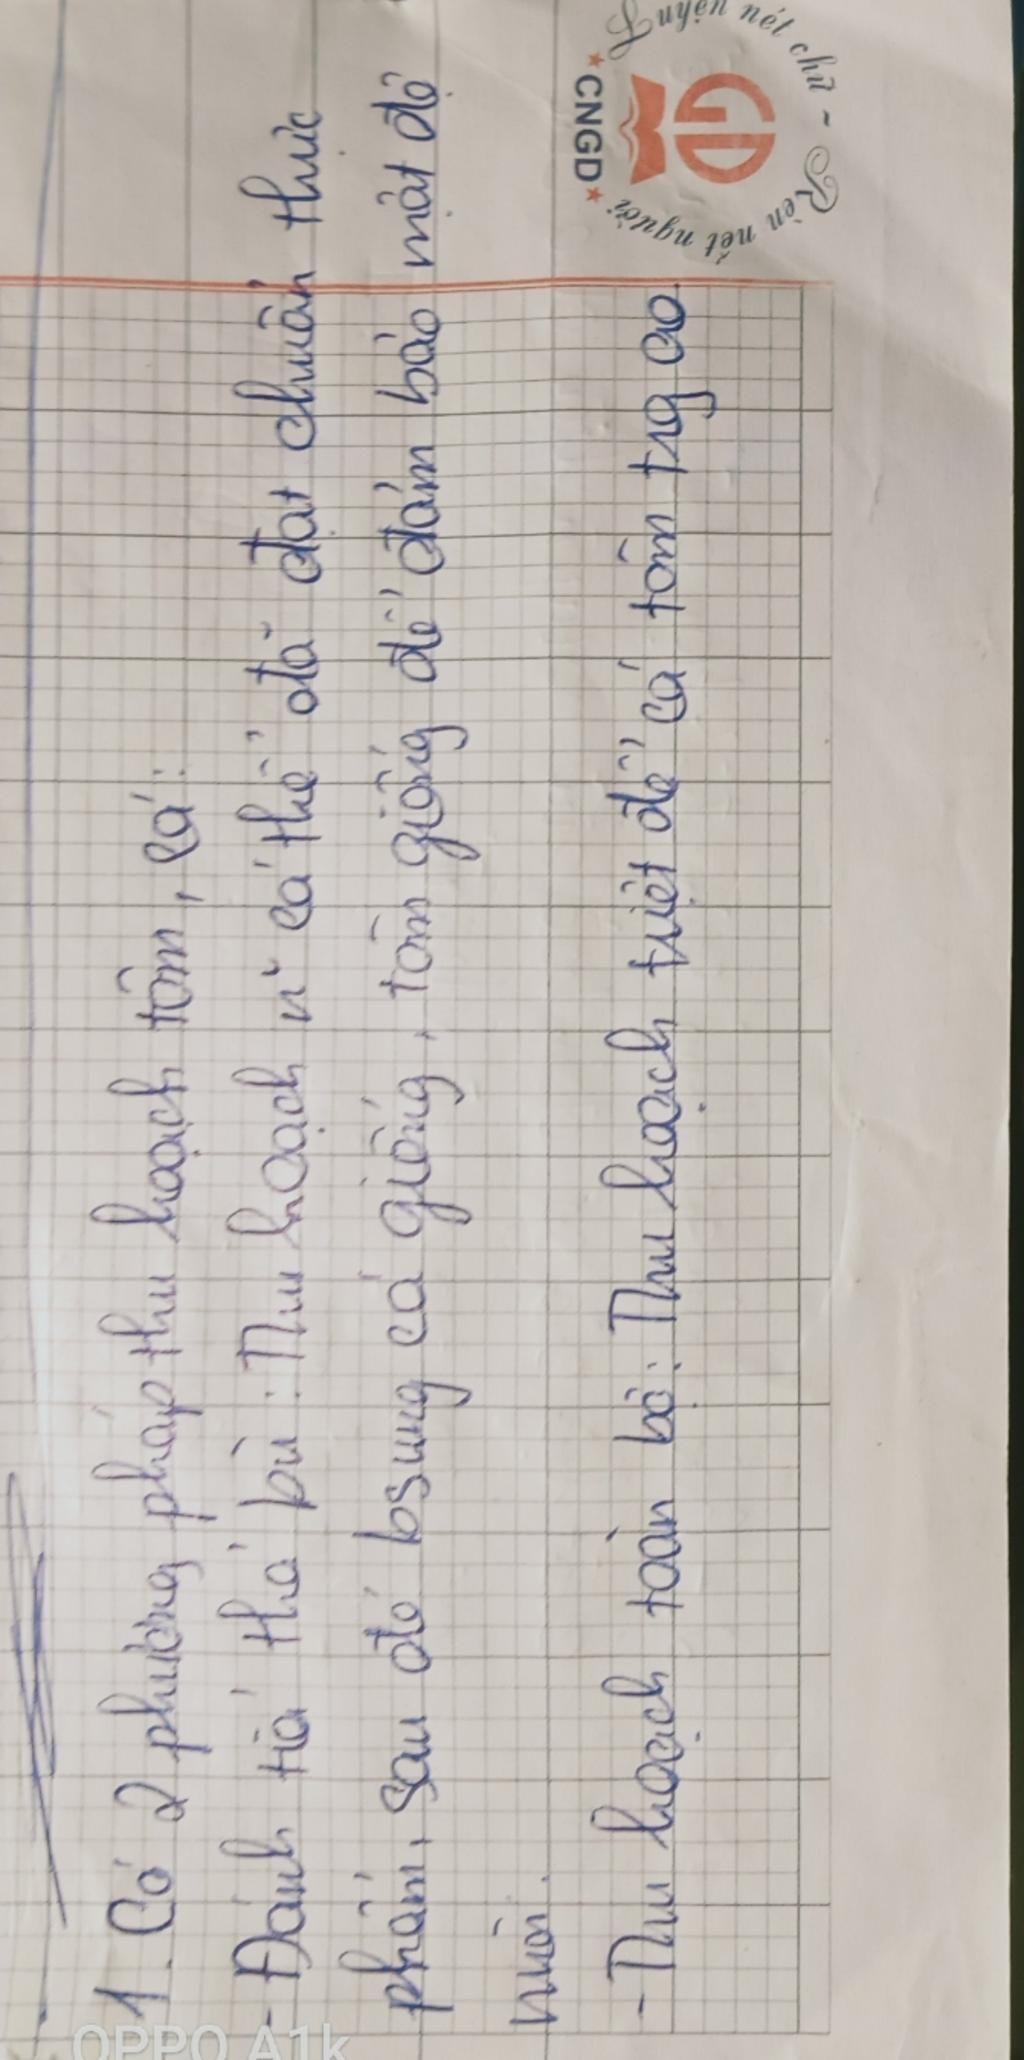 1. Có 2 phương pháp thu hoạch tôm, cá:
- Đánh tỉa thả bù: Thu hoạch n~ cá thể đã đạt chuẩn thực
phẩm, sau đó bsung cá giống, tôm giống để đảm bảo mật độ
nuôi.
- Thu hoạch toàn bộ: Thu hoạch triệt để cá tôm trg ao
Luyện nét chữ - Rèn nết người
GD
★CNGD★
OPPO A1k